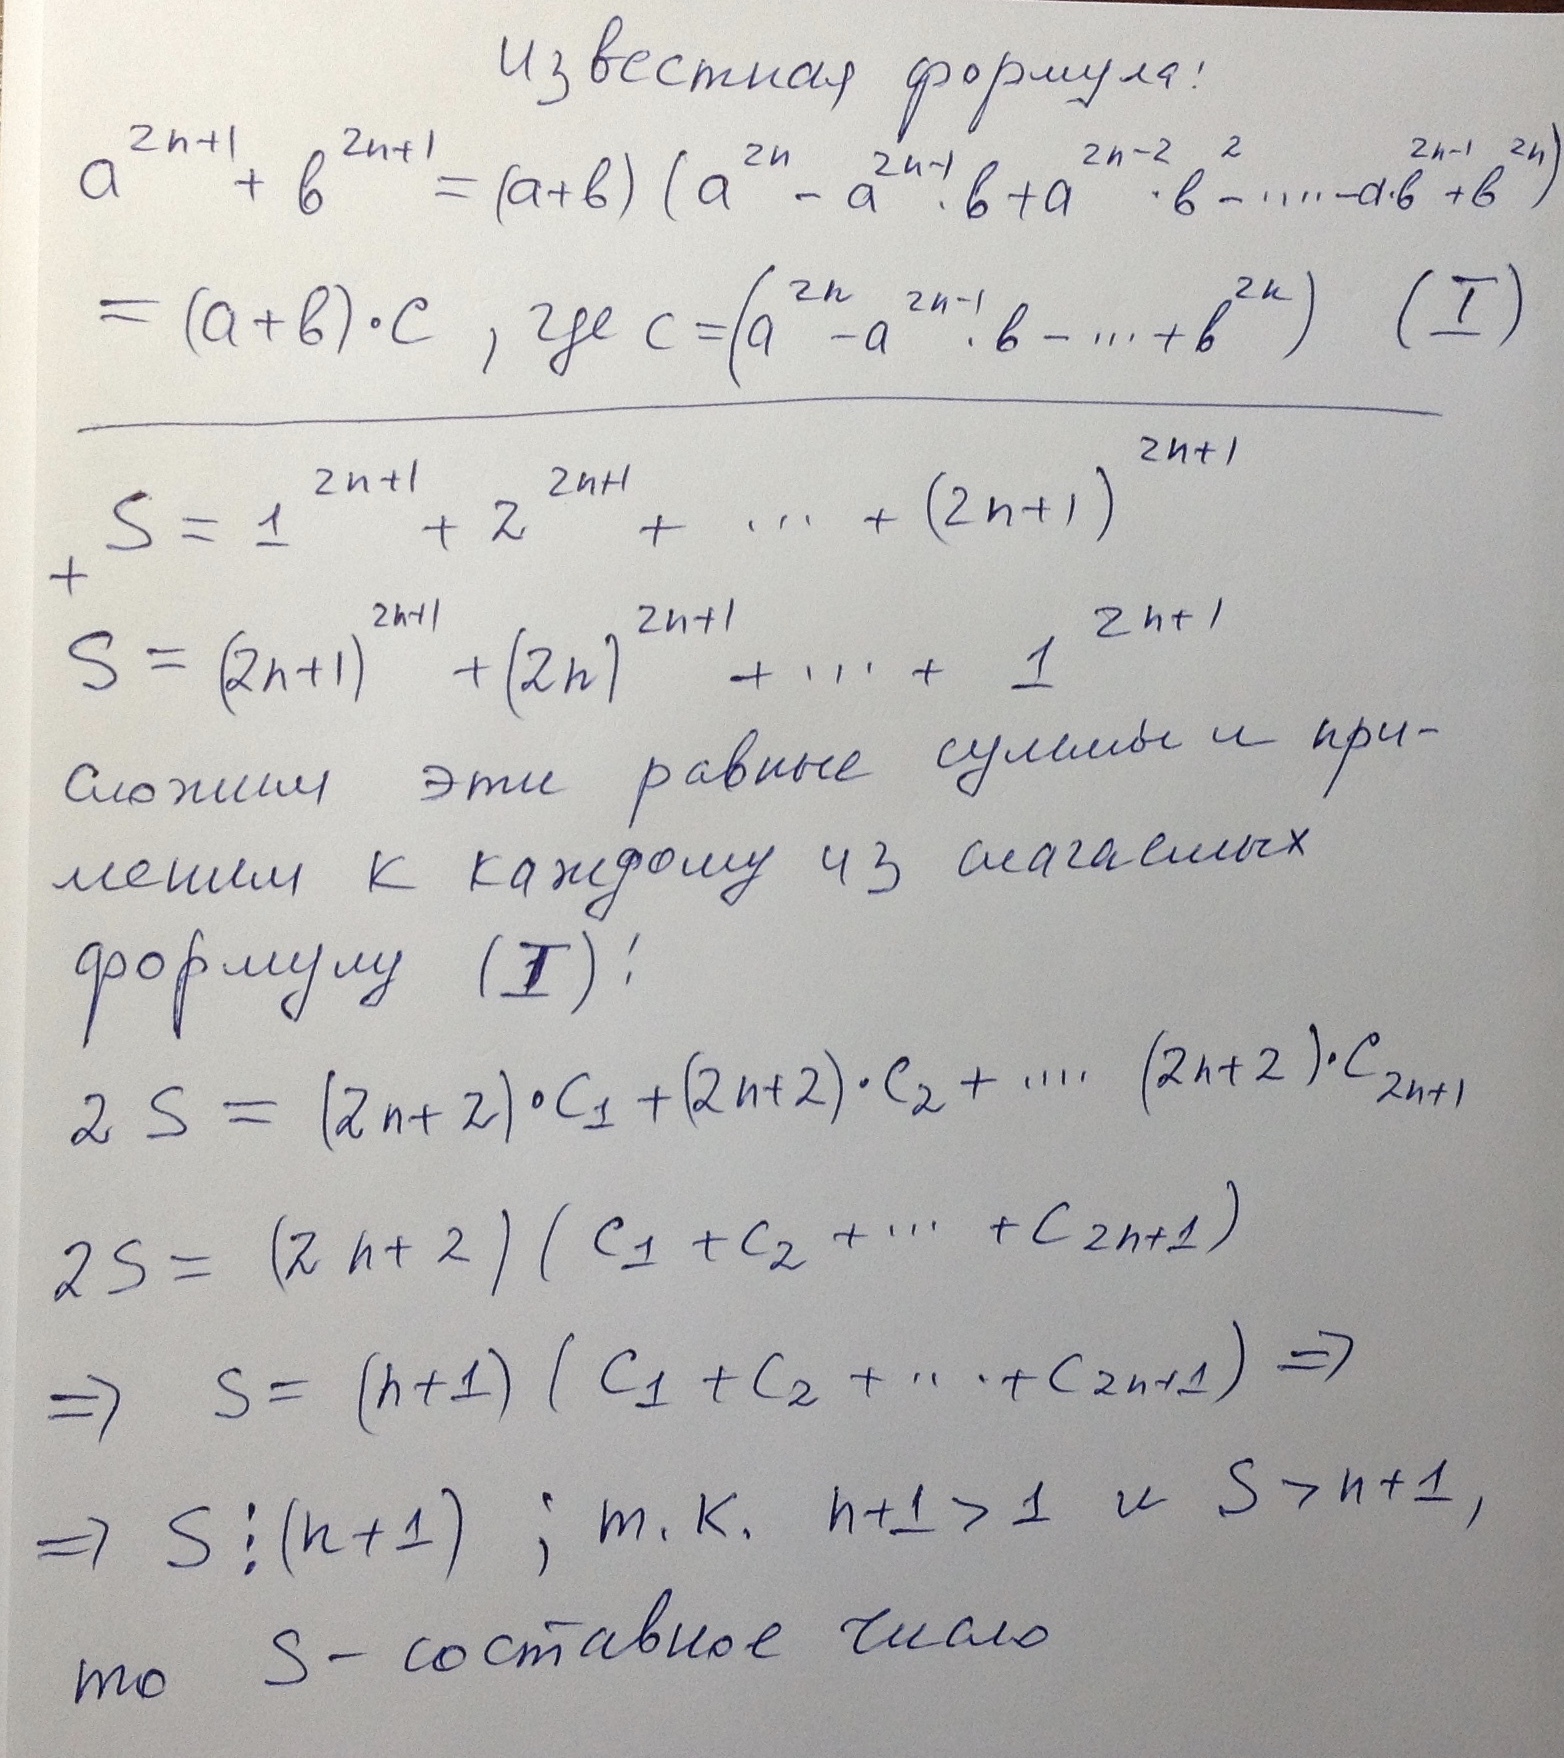 Известная формула:
a^{2n+1} + b^{2n+1} = (a+b) (a^{2n} - a^{2n-1}·b + a^{2n-2}·b^2 - ..... - a·b^{2n-1} + b^{2n})
= (a+b)·c , где c = (a^{2n} - a^{2n-1}·b - ... + b^{2n}) (I)
S = 1^{2n+1} + 2^{2n+1} + ... + (2n+1)^{2n+1}
+
S = (2n+1)^{2n+1} + (2n)^{2n+1} + ... + 1^{2n+1}
Сложим эти равные суммы и при-
меним к каждому из слагаемых
формулу (I):
2S = (2n+2)·C_1 + (2n+2)·C_2 + .... (2n+2)·C_{2n+1}
2S = (2n+2) (C_1 + C_2 + ... + C_{2n+1})
=> S = (n+1) (C_1 + C_2 + ... + C_{2n+1}) =>
=> S ⋮ (n+1) ; т.к. n+1 > 1 и S > n+1,
то S - составное число